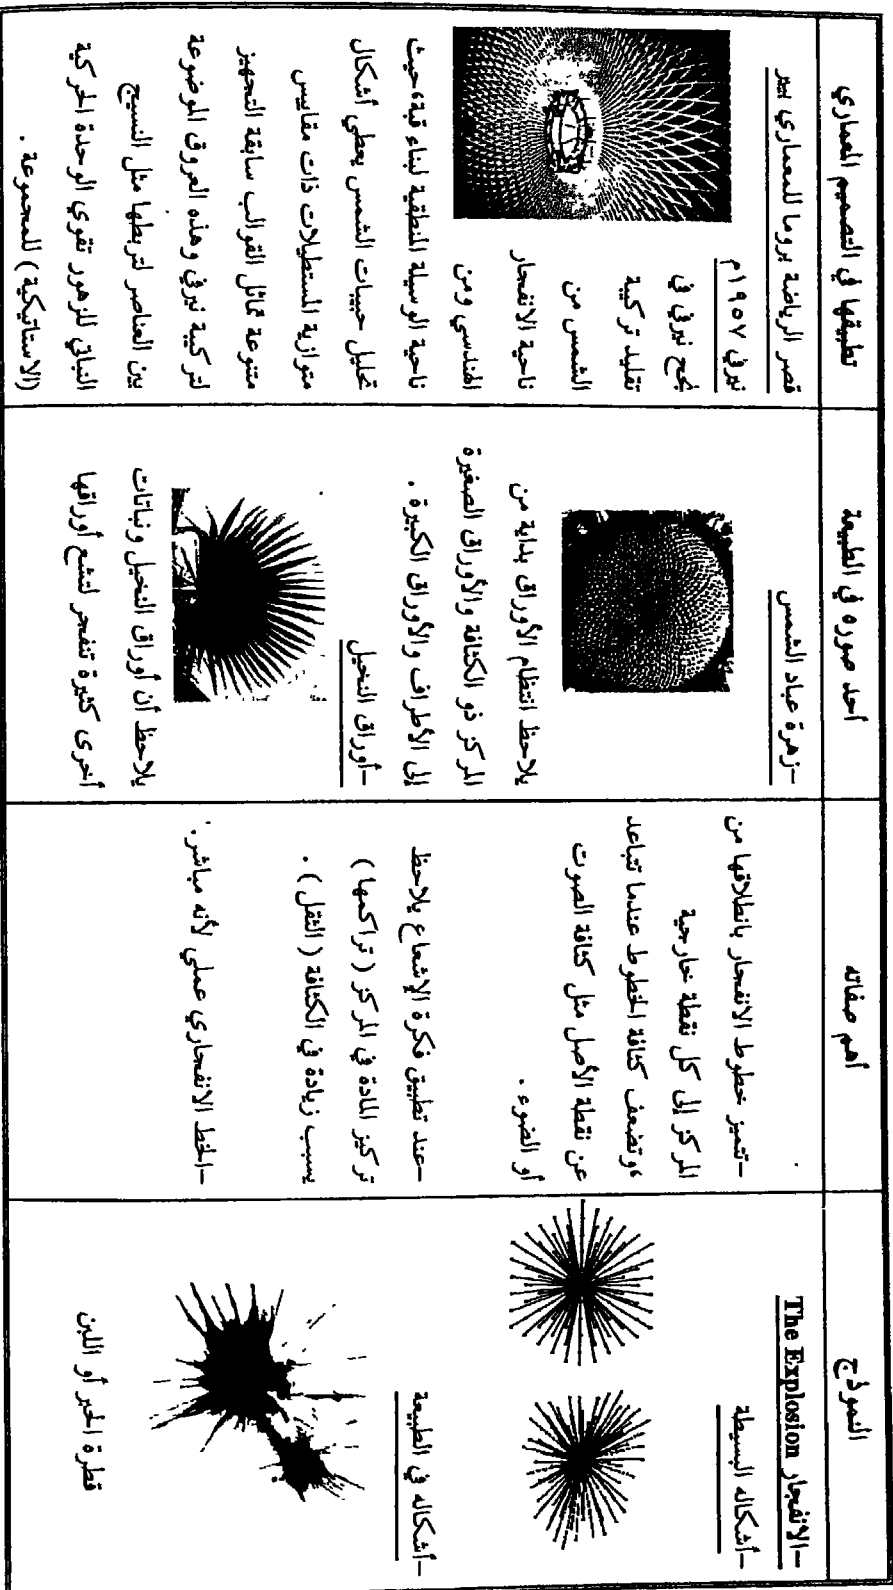 النموذج
أهم صفاته
أحد صوره في الطبيعة
تطبيقها في التصميم المعماري
–الانفجار The Explosion
–أشكاله البسيطة
–أشكاله في الطبيعة
قطرة الحبر أو اللبن
–تتميز خطوط الانفجار بانطلاقها من
المركز إلى كل نقطة خارجية
،وتضعف كثافة الخطوط عندما تتباعد
عن نقطة الأصل مثل كثافة الصوت
أو الضوء .
–عند تطبيق فكرة الإشعاع يلاحظ
تركيز المادة في المركز ( تراكمها )
يسبب زيادة في الكثافة ( الثقل ) .
–الخط الانفجاري عملي لأنه مباشر.
–زهرة عباد الشمس
يلاحظ انتظام الأوراق بداية من
المركز ذو الكثافة والأوراق الصغيرة
إلى الأطراف والأوراق الكبيرة .
–أوراق النخيل
يلاحظ أن أوراق النخيل ونباتات
أخرى كثيرة تنفجر لتشع أوراقها
قصر الرياضة بروما للمعماري بير
نيرفي ١٩٥٧م
نجح نيرفي في
تقليد تركيبة
الشمس من
ناحية الانفجار
الهندسي ومن
ناحية الوسيلة المنطقية لبناء قبة،حيث
تحليل حبيبات الشمس يعطي أشكال
متوازية المستطيلات ذات مقاييس
متنوعة تماثل القوالب سابقة التجهيز
لتركيبة نيرفي وهذه العروق الموضوعة
بين العناصر لتربطها مثل النسيج
النباتي للزهور تقوي الوحدة الحركية
(الاستاتيكية ) للمجموعة .